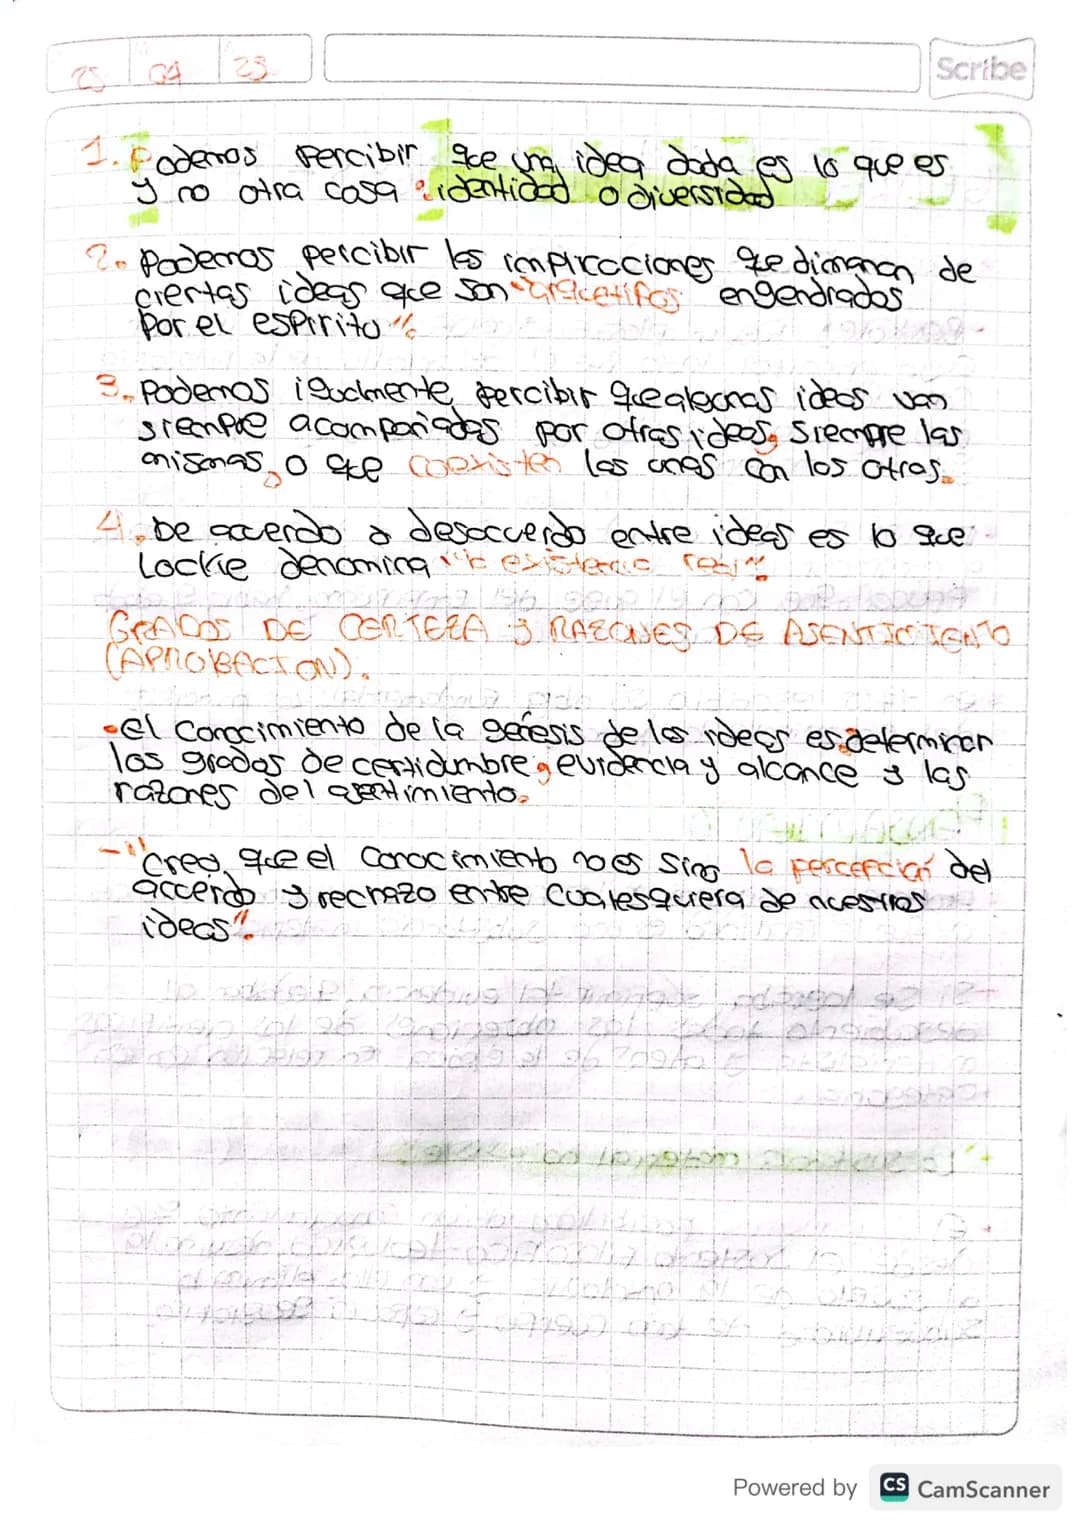 25 04 23
Scribe
1. Podemos percibir que una idea dada es lo que es
y no otra cosa: identidad o diversidad
2. Podemos percibir las implicaciones que dimanan de
ciertas ideas que son "arquetipos engendrados
por el espiritu".
3. Podemos igualmente percibir que algunas ideas van
siempre acompañadas por otras ideas, siempre las
mismas, o que coexisten las unas con los otras.
4. De acuerdo a desacuerdo entre ideas es lo que
Lockie denomina "la existencia real".
GRADOS DE CERTEZA y RAZONES DE ASENTICIENTO
(APROBACION).
•El conocimiento de la genesis de las ideas es determinar
los grados de certidumbre, evidencia y alcance y las
razones del asentimiento.
-"Creo que el conocimiento no es sino la percepción del
acuerdo y rechazo entre cualesquiera de nuestras
ideas".
Powered by CS CamScanner